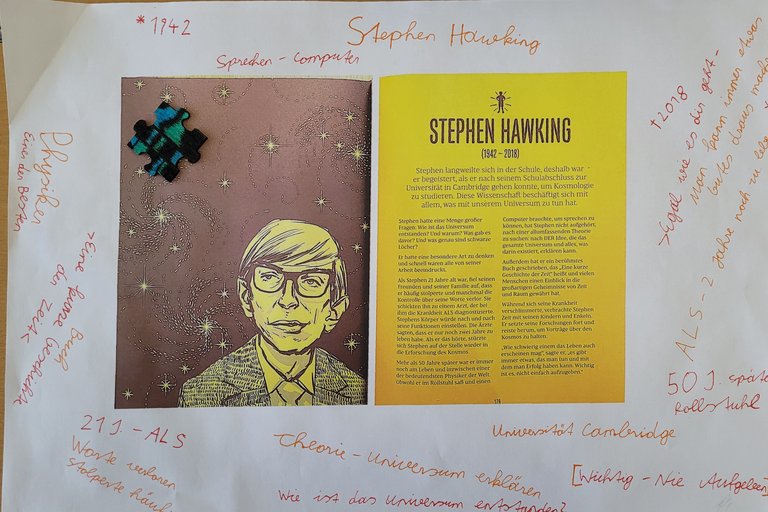 *1942
Stephen Hawking
Sprechen - Computer
†2018
→ Egal wie es dir geht -
man kann immer etwas
ALS - 2 Jahre noch zu
50 J. späte
Rollstuhl
Universität Cambridge
[Wichtig - Nie Aufgeben]
Theorie - Universum erklären
Wie ist das Universum entstanden?
21 J. - ALS
Worte verloren
stolperte häuf
Physiker
Einer der Besten
Buch
→ Eine kurze Geschichte
der Zeit
STEPHEN HAWKING
(1942 – 2018)
Stephen langweilte sich in der Schule, deshalb war
er begeistert, als er nach seinem Schulabschluss zur
Universität in Cambridge gehen konnte, um Kosmologie
zu studieren. Diese Wissenschaft beschäftigt sich mit
allem, was mit unserem Universum zu tun hat.
Stephen hatte eine Menge großer
Fragen: Wie ist das Universum
entstanden? Und warum? Was gab es
davor? Und was genau sind schwarze
Löcher?
Er hatte eine besondere Art zu denken
und schnell waren alle von seiner
Arbeit beeindruckt.
Als Stephen 21 Jahre alt war, fiel seinen
Freunden und seiner Familie auf, dass
er häufig stolperte und manchmal die
Kontrolle über seine Worte verlor. Sie
schickten ihn zu einem Arzt, der bei
ihm die Krankheit ALS diagnostizierte.
Stephens Körper würde nach und nach
seine Funktionen einstellen. Die Ärzte
sagten, dass er nur noch zwei Jahre zu
leben habe. Als er das hörte, stürzte
sich Stephen auf der Stelle wieder in
die Erforschung des Kosmos.
Mehr als 50 Jahre später war er immer
noch am Leben und inzwischen einer
der bedeutendsten Physiker der Welt.
Obwohl er im Rollstuhl saß und einen
Computer brauchte, um sprechen zu
können, hat Stephen nicht aufgehört,
nach einer allumfassenden Theorie
zu suchen: nach DER Idee, die das
gesamte Universum und alles, was
darin existiert, erklären kann.
Außerdem hat er ein berühmtes
Buch geschrieben, das „Eine kurze
Geschichte der Zeit" heißt und vielen
Menschen einen Einblick in die
großartigen Geheimnisse von Zeit
und Raum gewährt hat.
Während sich seine Krankheit
verschlimmerte, verbrachte Stephen
Zeit mit seinen Kindern und Enkeln.
Er setzte seine Forschungen fort und
reiste herum, um Vorträge über den
Kosmos zu halten.
„Wie schwierig einem das Leben auch
erscheinen mag", sagte er, „es gibt
immer etwas, das man tun und mit
dem man Erfolg haben kann. Wichtig
ist es, nicht einfach aufzugeben."
176